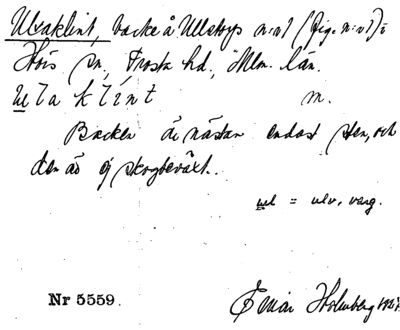 Ulvaklint, backe å Ullstorps n:o1 (fig. n:o1) i
Hörs sn, Frosta hd., Mlm. län.
ulaklint m.
Backen är nästan endast sten, och
den är ej skogbeväxt.
ul = ulv, varg.
Nr 5559. Einar Holmberg